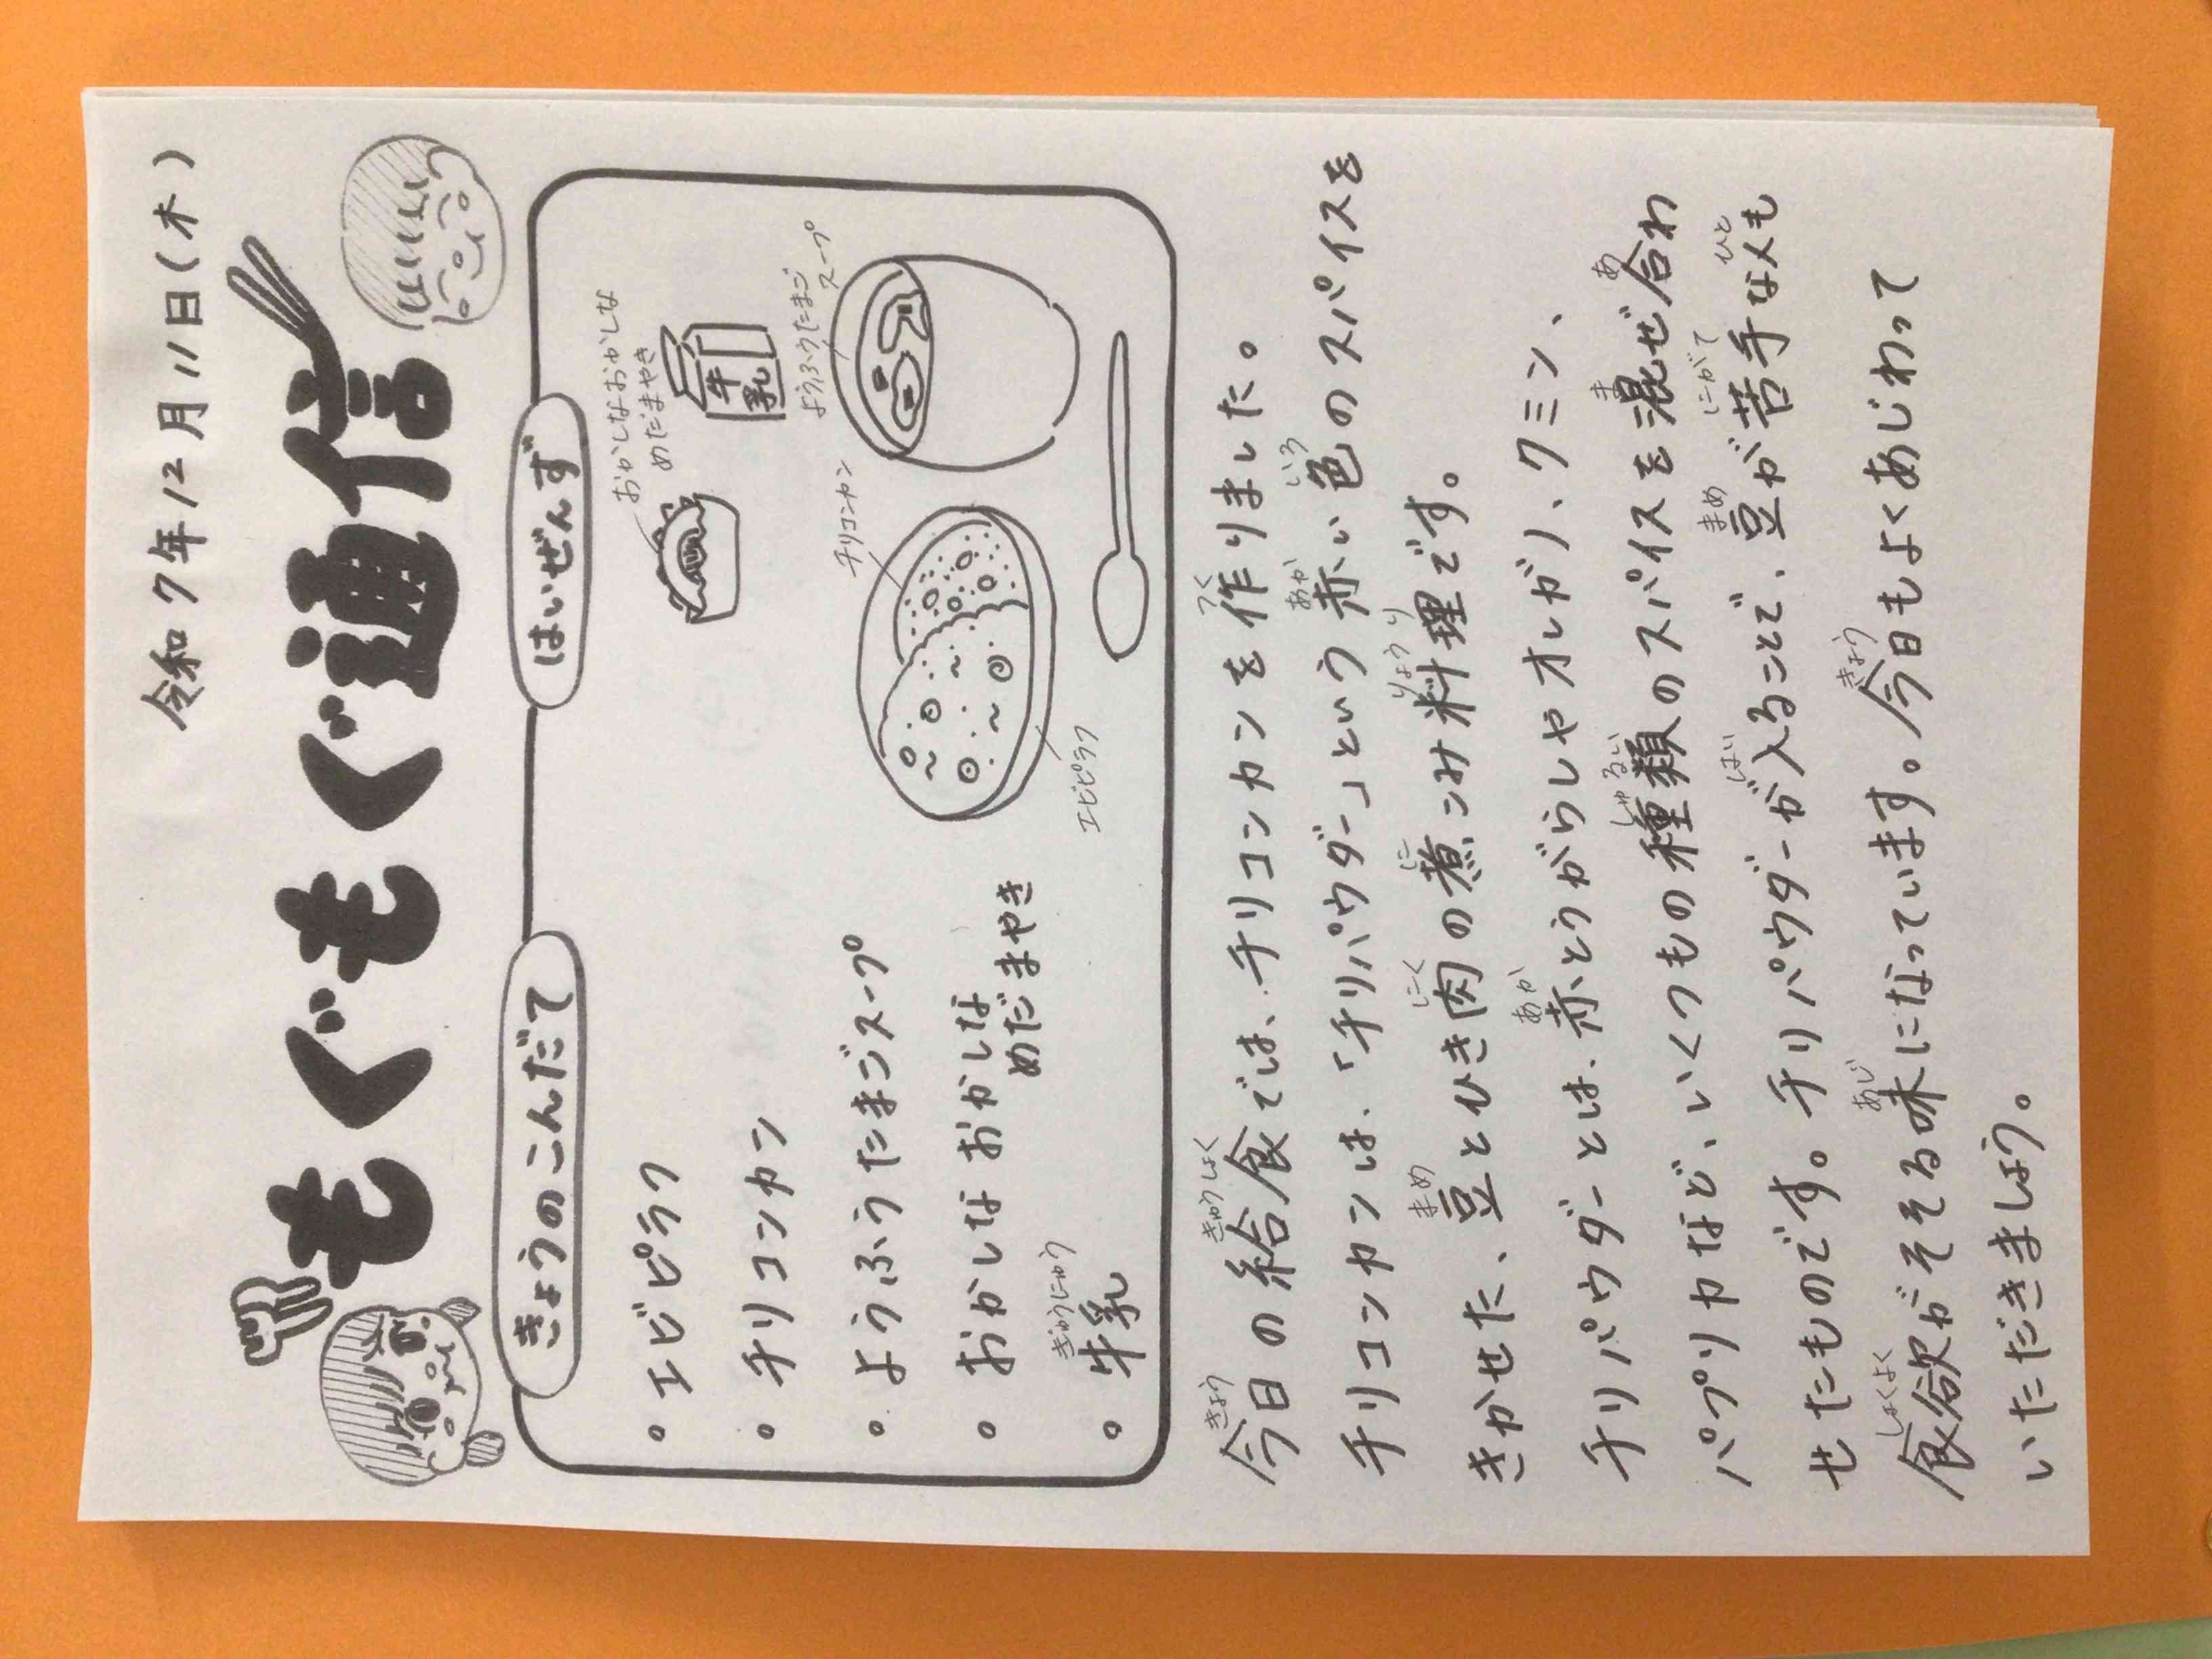 令和7年12月11日(木)
もぐもぐ通信
きょうのこんだて
・エビピラフ
・チリコンカン
・ようふうたまごスープ
・おかしなおかしな
めだまやき
ぎゅうにゅう
・牛乳
はいぜんず
おかしなおかしな
めだまやき
牛
乳
ようふうたまご
スープ
チリコンカン
エビピラフ
きょう きゅうしょく つく
今日の給食では、チリコンカンを作りました。
あか いろ
チリコンカンは、「チリパウダー」という赤い色のスパイスを
まめ にく に りょうり
きかせた、豆とひき肉の煮こみ料理です。
あか
チリパウダーとは、赤とうがらしやオレガノ、クミン、
しゅるい ま あ
パプリカなど、いくつもの種類のスパイスを混ぜ合わ
はい まめ にがて ひと
せたものです。チリパウダーが入ることで、豆が苦手な人も
しょくよく あじ きょう
食欲がそそる味になっています。今日もよくあじわって
いただきましょう。